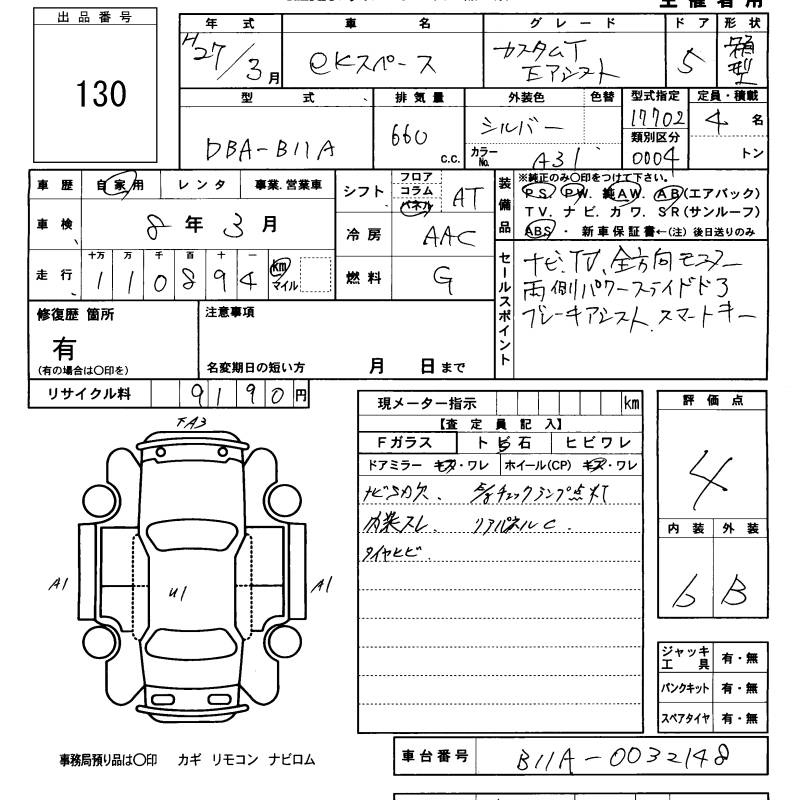 出品番号
130
年式
H27/3月
車名
eKスペース
グレード
カスタムT
Eアシスト
ドア
5
形状
箱型
型式
DBA-B11A
排気量
660 C.C.
外装色
シルバー
色替
カラーNo.
A31
型式指定
17702
類別区分
0004
定員・積載
4名
トン
車歴
自家用
レンタ
事業.営業車
車検
8年3月
走行
十万 万 千 百 十 一
110894
km
マイル
シフト
フロア
コラム
パネル
AT
冷房
AAC
燃料
G
装備品
※純正のみ〇印をつけて下さい。
PS. PW. 純AW. AB(エアバック)
TV. ナビ. カワ. SR(サンルーフ)
ABS. ・ 新車保証書←(注) 後日送りのみ
セールスポイント
ナビ、TV、全方向モニター
両側パワースライドドア
ブレーキアシスト、スマートキー
修復歴 箇所
有
(有の場合は〇印を)
注意事項
名変期日の短い方 月 日まで
リサイクル料
9190円
現メーター指示 km
【査定員記入】
Fガラス
トビ石
ヒビワレ
ドアミラー キズ・ワレ
ホイール(CP) キズ・ワレ
ナビSD欠.
チェックランプ点灯
内装スレ.
リアパネルC.
タイヤヒビ.
評価点
4
内装
外装
6
B
FA3
A1
U1
A1
ジャッキ
工具
有・無
パンクキット
有・無
スペアタイヤ
有・無
事務局預り品は〇印 カギ リモコン ナビロム
車台番号
B11A-0032148